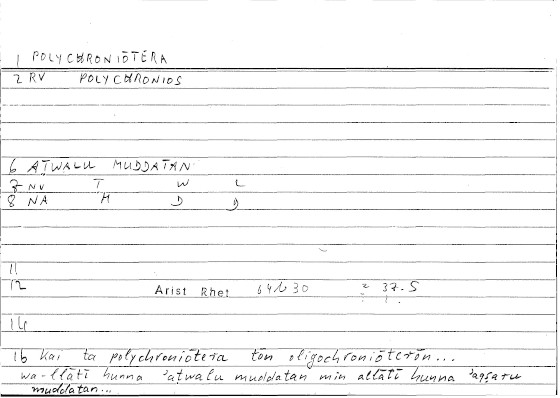 1 POLYCHRONIŌTERA
2 RV POLYCHRONIOS
6 AṬWALU MUDDATAN
7 NV Ṭ W L
8 NA M D D
11
12 Arist Rhet 64b30 = 37.5
14
16 kai ta polychroniōtera tōn oligochroniōterōn...
wa-llātī hunna ʾaṭwalu muddatan min allātī hunna ʾaqṣaru
muddatan...